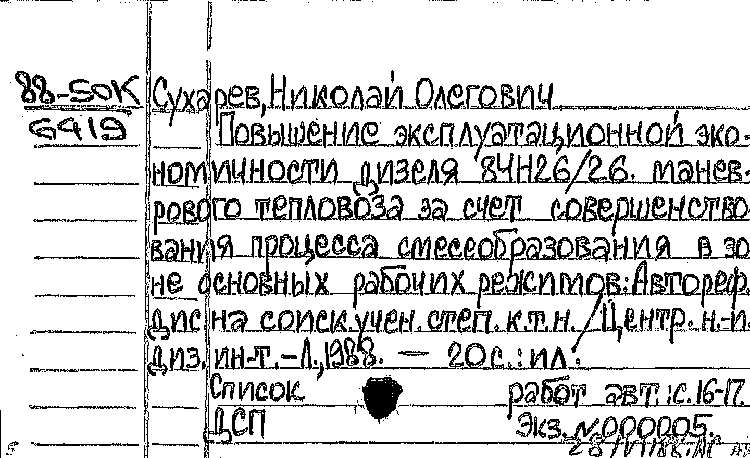 88-50К
6419
Сухарев, Николай Олегович
Повышение эксплуатационной эко-
номичности дизеля 8ЧН26/26. манев-
рового тепловоза за счет совершенство
вания процесса смесеобразования в зо
не основных рабочих режимов: Автореф.
дис на соиск. учен. степ. к.т.н. / Центр. н.-и.
диз. ин-т. - Л., 1988. — 20 с. : ил.
Список работ авт.: с. 16-17.
ДСП Экз. N 000005.